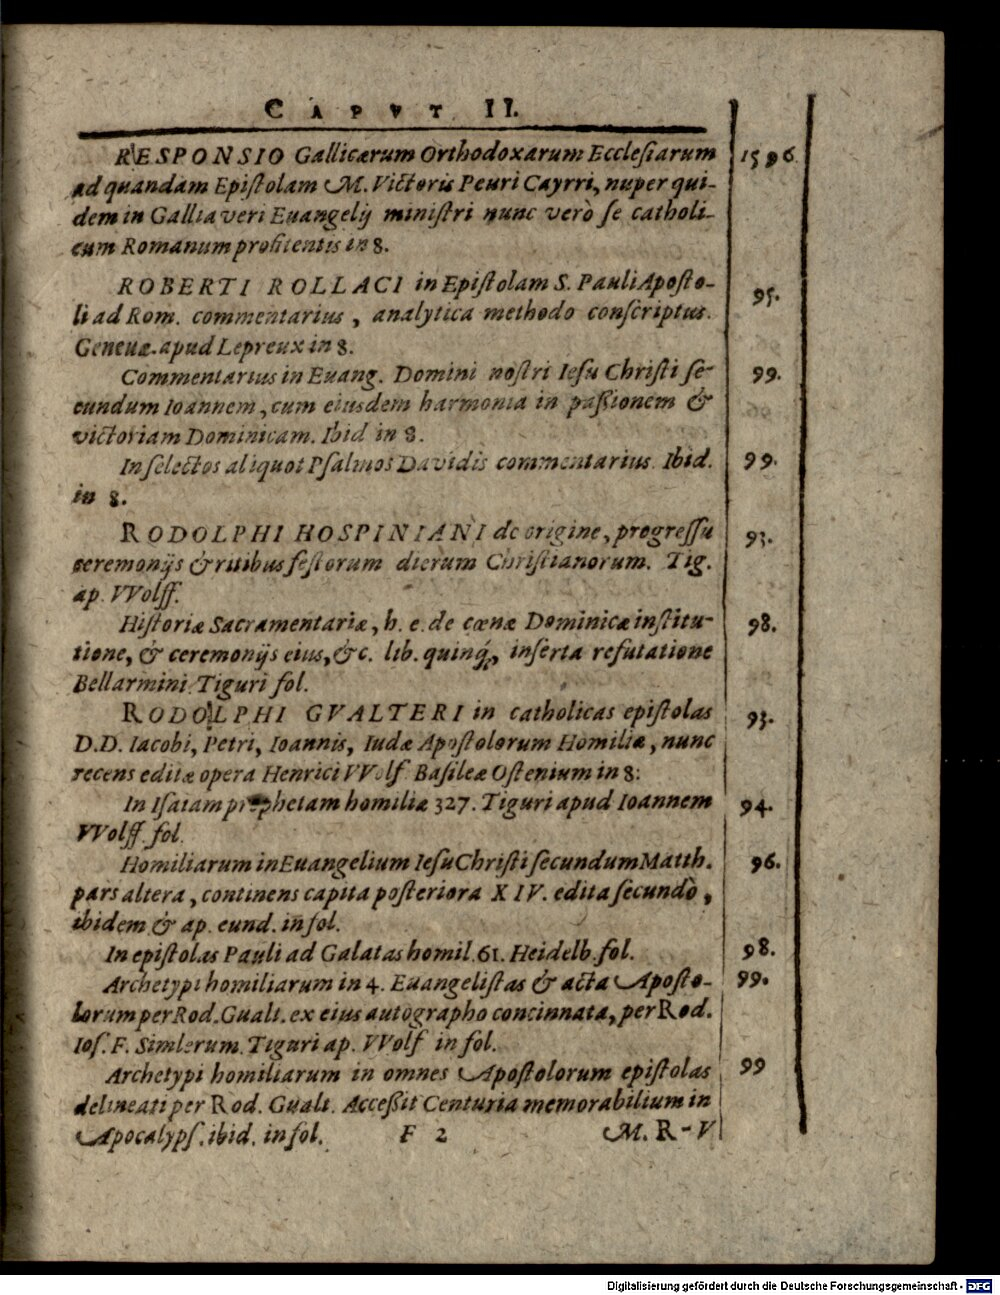 CAPVT II.
RESPONSIO Gallicarum Orthodoxarum Ecclesiarum 1596
ad quandam Epistolam M. Victoris Peuri Cayrri, nuper qui-
dem in Gallia veri Euangelij ministri nunc verò se catholi-
cum Romanum profitentis in 8.
ROBERTI ROLLACI in Epistolam S. Pauli Aposto- 95.
li ad Rom. commentarius, analytica methodo conscriptus.
Geneuæ. apud Lepreux in 8.
Commentarius in Euang. Domini nostri Iesu Christi se- 99.
cundum Ioannem, cum eiusdem harmonia in passionem &
victoriam Dominicam. Ibid in 8.
In selectos aliquot Psalmos Davidis commentarius. Ibid. 99.
in 8.
RODOLPHI HOSPINIANI de origine, progressu 93.
ceremonijs & ritibus festorum dierum Christianorum. Tig.
ap. VVolff.
Historiæ Sacramentariæ, h. e. de cœnæ Dominicæ institu- 98.
tione, & ceremonijs eius, &c. lib. quinq;, inserta refutatione
Bellarmini. Tiguri fol.
RODOLPHI GVALTERI in catholicas epistolas 93.
D.D. Iacobi, Petri, Ioannis, Iudæ Apostolorum Homiliæ, nunc
recens editæ opera Henrici VVolf Basileæ Ostenium in 8:
In Isaiam prophetam homiliæ 327. Tiguri apud Ioannem 94.
VVolff. fol.
Homiliarum in Euangelium Iesu Christi secundum Matth. 96.
pars altera, continens capita posteriora XIV. edita secundò,
ibidem & ap. eund. in fol.
In epistolas Pauli ad Galatas homil. 61. Heidelb. fol. 98.
Archetypi homiliarum in 4. Euangelistas & acta Aposto- 99.
lorum per Rod. Gualt. ex eius autographo concinnata, per Rod.
Ios. F. Simlerum. Tiguri ap. VVolf in fol.
Archetypi homiliarum in omnes Apostolorum epistolas 99
delineati per Rod. Gualt. Accessit Centuria memorabilium in
Apocalyps. ibid. in fol. F 2 M. R-V
Digitalisierung gefördert durch die Deutsche Forschungsgemeinschaft - DFG